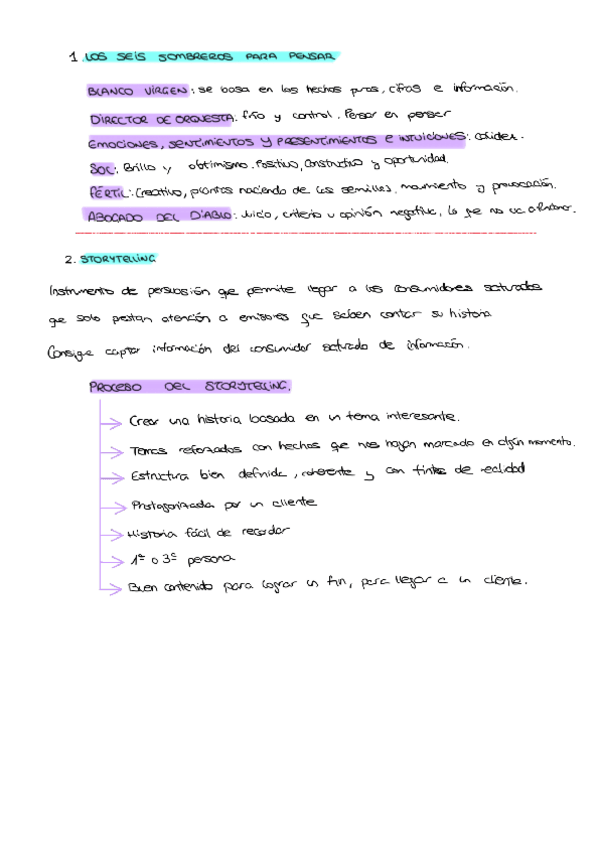 1. LOS SEIS SOMBREROS PARA PENSAR
BLANCO VIRGEN: se basa en los hechos puros, cifras e información.
DIRECTOR DE ORQUESTA: frío y control. Pensar en pensar
EMOCIONES, SENTIMIENTOS Y PRESENTIMIENTOS E INTUICIONES: calidez.
SOL: Brillo y obtimismo. Positivo, constructivo y oportunidad.
FÉRTIL: Creativo, plantas naciendo de las semillas, movimiento y provocación.
ABOGADO DEL DIABLO: Juicio, criterio u opinión negativa, lo que no va a
2. STORYTELLING
Instrumento de persuasión que permite llegar a los consumidores saturados
que solo prestan atención a emisores que saben contar su historia
Consigue captar información del consumidor saturado de información.
PROCESO DEL STORYTELLING.
→ Crear una historia basada en un tema interesante.
→ Temas reforzados con hechos que nos hayan marcado en algún momento.
→ Estructura bien definida, coherente y con tintes de realidad
→ Protagonizada por un cliente
→ Historia fácil de recordar
→ 1ª o 3ª persona
→ Buen contenido para lograr un fin, para llegar a un cliente.